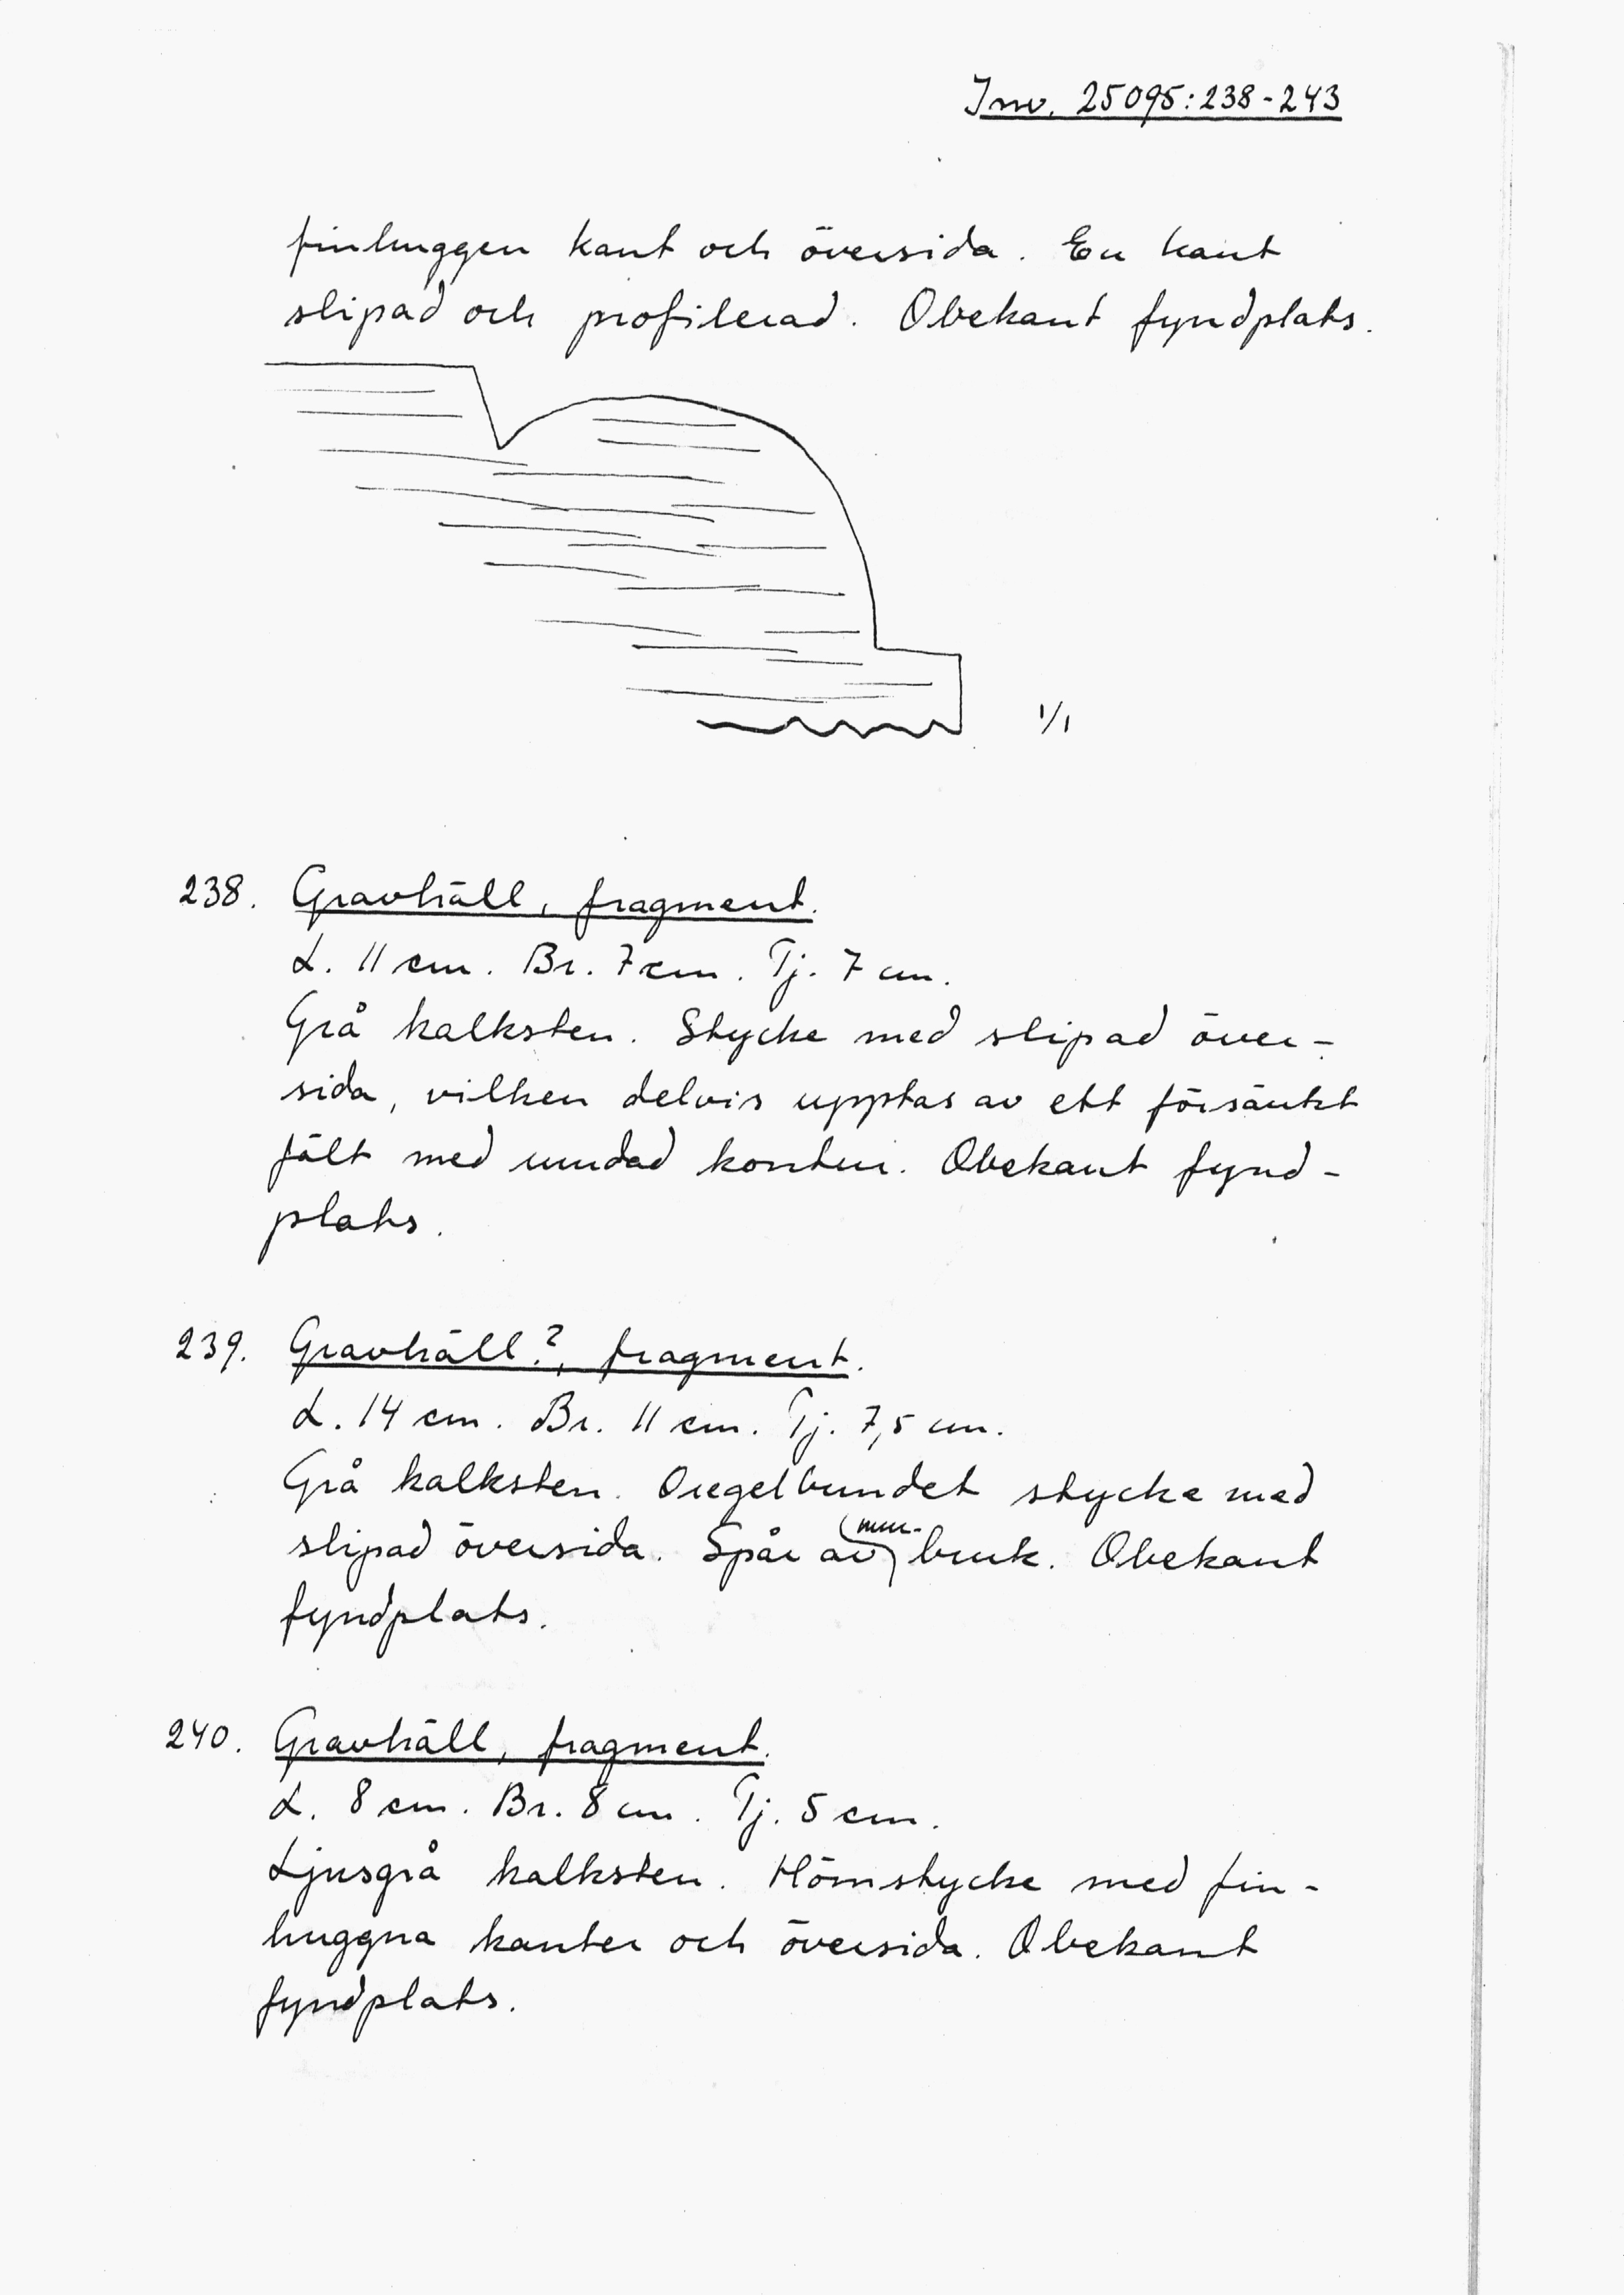 Inv. 25095:238-243
finhuggen kant och översida. En kant
slipad och profilerad. Obekant fyndplats.
1/1
238. Gravhäll, fragment.
L. 11 cm. Br. 7 cm. Tj. 7 cm.
Grå kalksten. Stycke med slipad över-
sida, vilken delvis upptas av ett försänkt
fält med rundad kontur. Obekant fynd-
plats.
239. Gravhäll?, fragment.
L. 14 cm. Br. 11 cm. Tj. 7,5 cm.
Grå kalksten. Oregelbundet stycke med
slipad översida. Spår av mur-bruk. Obekant
fyndplats.
240. Gravhäll, fragment.
L. 8 cm. Br. 8 cm. Tj. 5 cm.
Ljusgrå kalksten. Hörnstycke med fin-
huggna kanter och översida. Obekant
fyndplats.